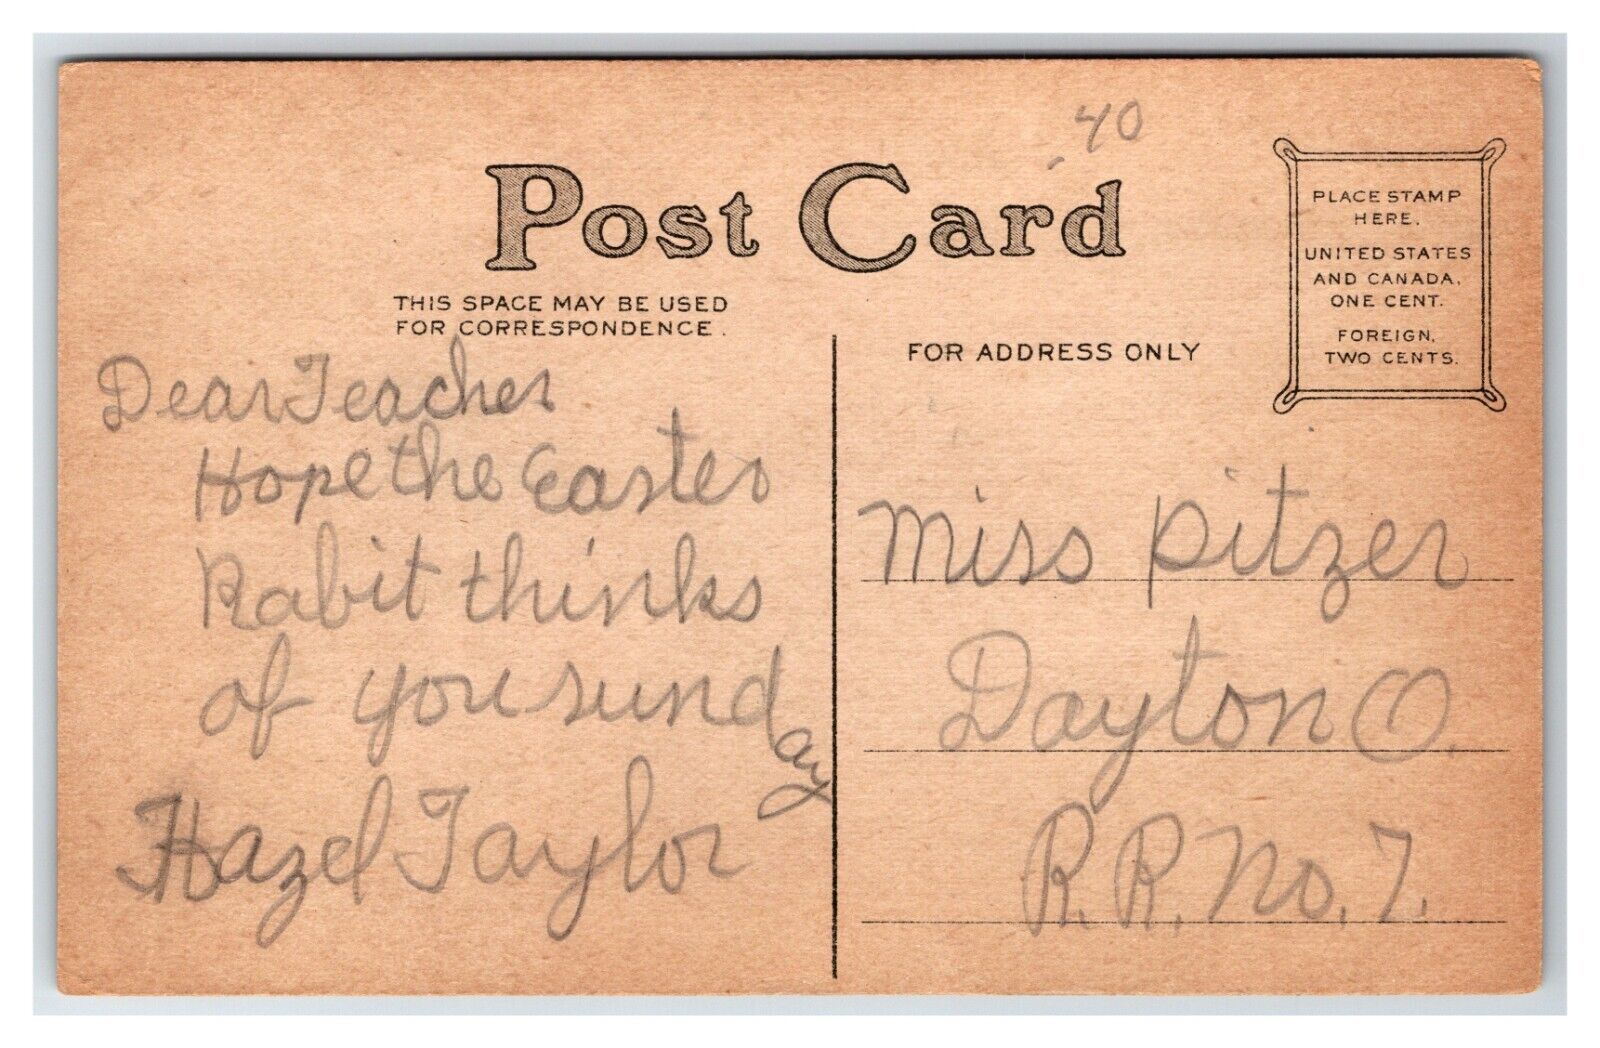 40
Post Card
THIS SPACE MAY BE USED
FOR CORRESPONDENCE.
FOR ADDRESS ONLY
PLACE STAMP
HERE.
UNITED STATES
AND CANADA,
ONE CENT.
FOREIGN,
TWO CENTS.
Dear Teacher
Hope the Easter
Rabit thinks
of you sunday
Hazel Taylor
Miss Pitzer
Dayton O.
R.R. No. 7.